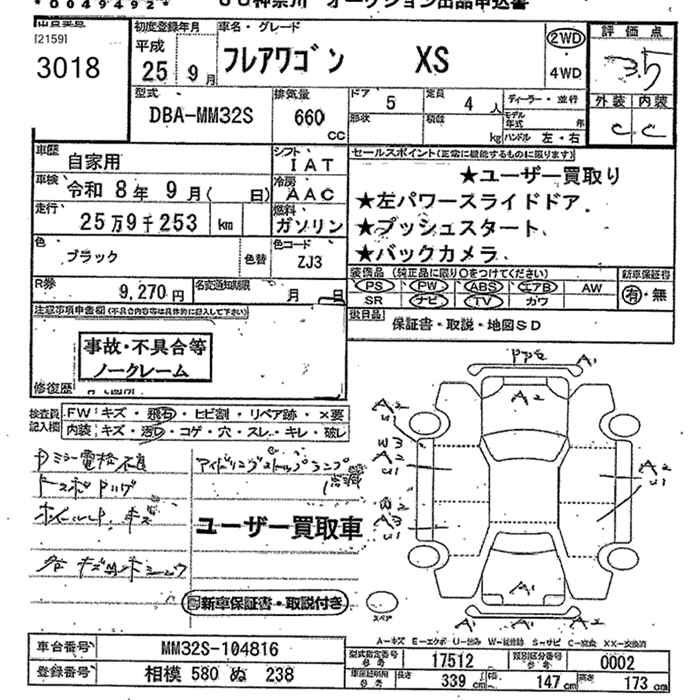 *0049492*
ＪＵ神奈川 オークション出品申込書
[2159]
3018
初度登録年月
平成
25 年 9 月
車名・グレード
フレアワゴン XS
2WD
・
4WD
評価点
3.5
外装 内装
C C
型式
DBA-MM32S
排気量
660 CC
ドア 5
定員 4 人
ディーラー・並行
形状
積載 kg
モデル年式 年
ハンドル 左・右
車歴 自家用
車検 令和 8 年 9 月( 日)
走行 25万9千253 km
シフト IAT
冷房 AAC
燃料 ガソリン
色 ブラック
色替
色コード ZJ3
R券 9,270 円
名変通知期限 月 日
セールスポイント(正常に機能するものに限ります)
★ユーザー買取り
★左パワースライドドア
★プッシュスタート
★バックカメラ
装備品 (純正品に限り○をつけてください)
PS PW ABS エアB AW
SR ナビ TV カワ
新車保証書
有・無
後日品
保証書・取説・地図SD
注意事項申告欄(不具合内容等は具体的に記入して下さい)
事故・不具合等
ノークレーム
修復歴
検査員記入欄
FW:キズ・飛石・ヒビ割・リペア跡・×要
内装:キズ・汚レ・コゲ・穴・スレ・キレ・破レ
Dミラー電格不良
アイドリングストップランプ点滅
ホイール キズ
ユーザー買取車
新車保証書・取説付き
A1
A2
A2
U1
W3
U1
A3
U1
A2
U1
A2
A1
A1
スペア
A-キズ E-エクボ U-凹み W-補修跡 S-サビ C-腐食 XX-交換済
車台番号 MM32S-104816
登録番号 相模 580 ぬ 238
型式指定番号 参考 17512
類別区分番号 参考 0002
車検証明用 参考 長さ 339 cm 幅 147 cm 高さ 173 cm